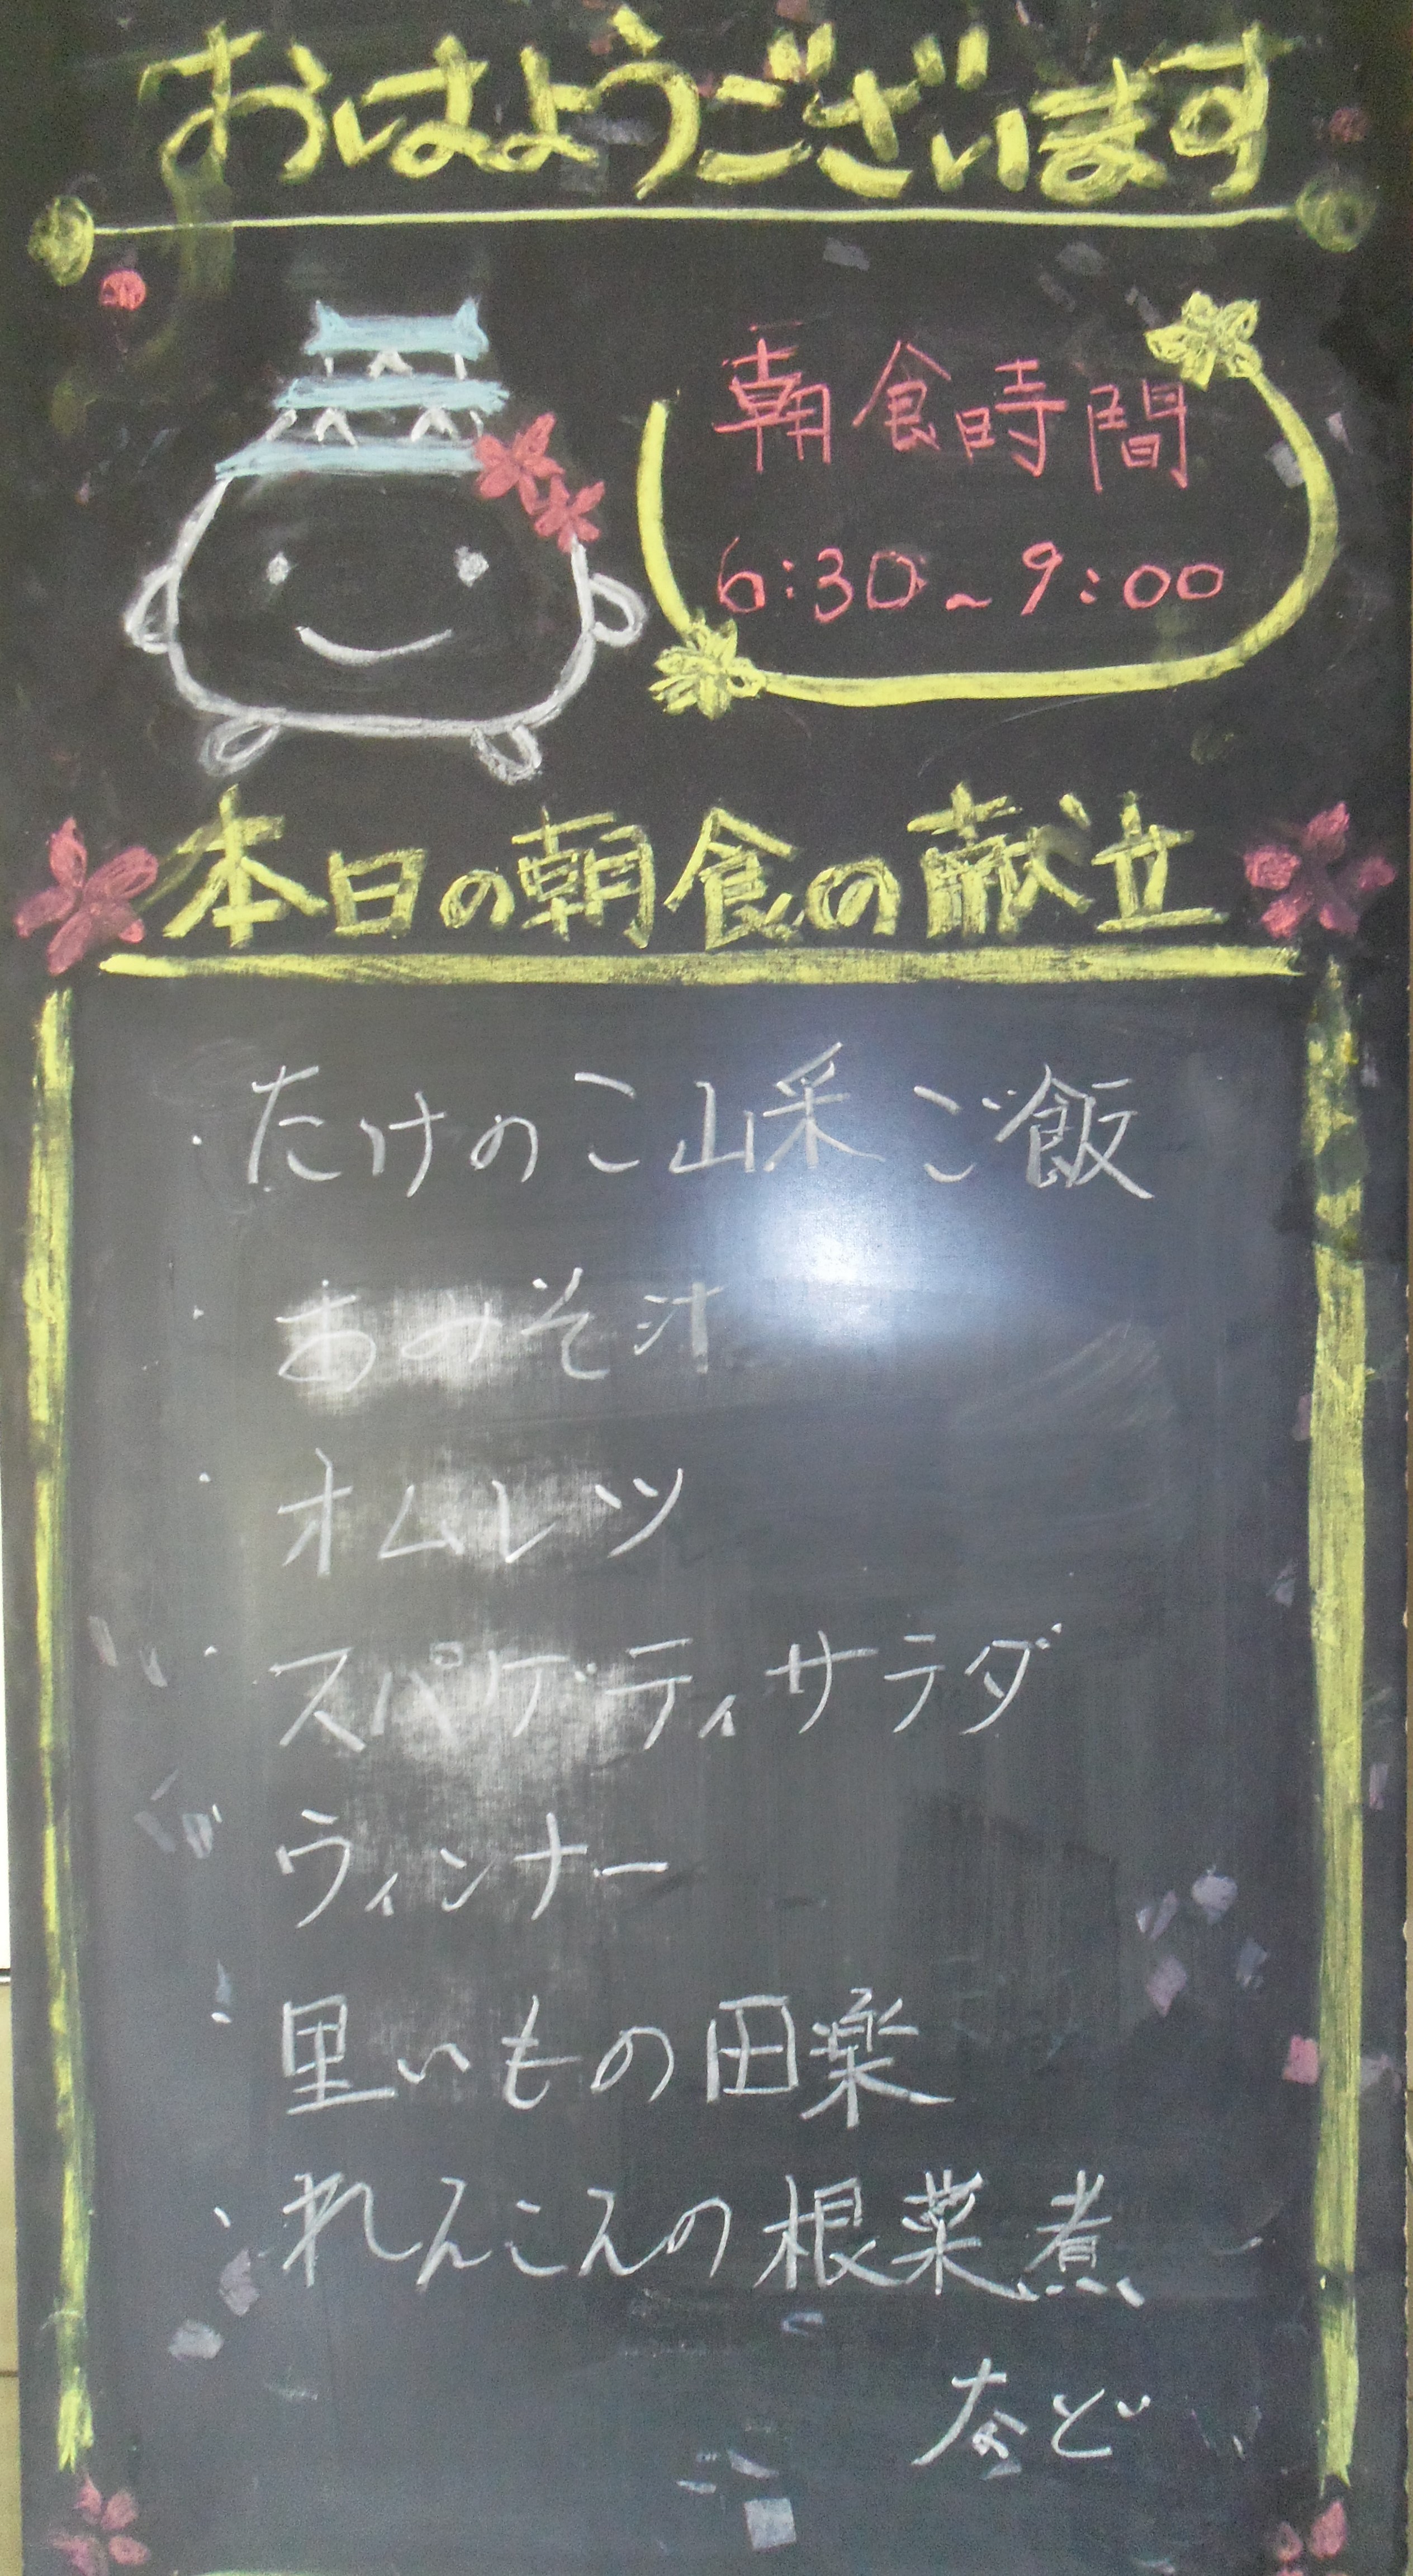 おはようございます
朝食時間
6:30~9:00
本日の朝食の献立
・たけのこ山菜ご飯
・あみそ汁
・オムレツ
・スパゲティサラダ
・ウィンナー
・里いもの田楽
・れんこんの根菜煮
など